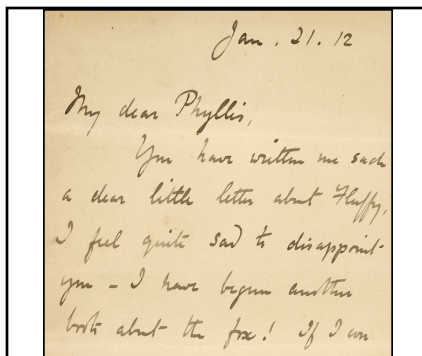 Jan. 21. 12
My dear Phyllis,
You have written me such
a dear little letter about Fluffy,
I feel quite sad to disappoint
you – I have begun another
book about the fox! If I